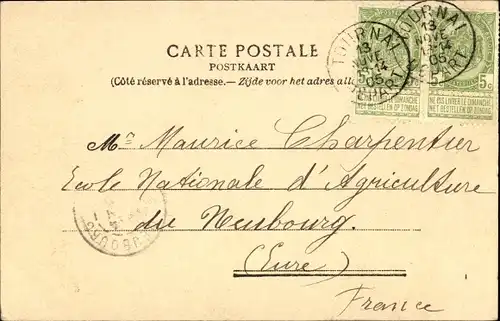 CARTE POSTALE
POSTKAART
(Côté réservé à l'adresse.— Zijde voor het adres
TOURNAI
13
NOVE
14
05
DEPART
TOURNAI
13
NOVE
14
05
DEPART
5c 5c
NE PAS LIVRER LE DIMANCHE
NIET BESTELLEN OP ZONDAG
NE PAS LIVRER LE DIMANCHE
NIET BESTELLEN OP ZONDAG
Mr Maurice Charpentier
Ecole Nationale d'Agriculture
du Neubourg
(Eure)
France